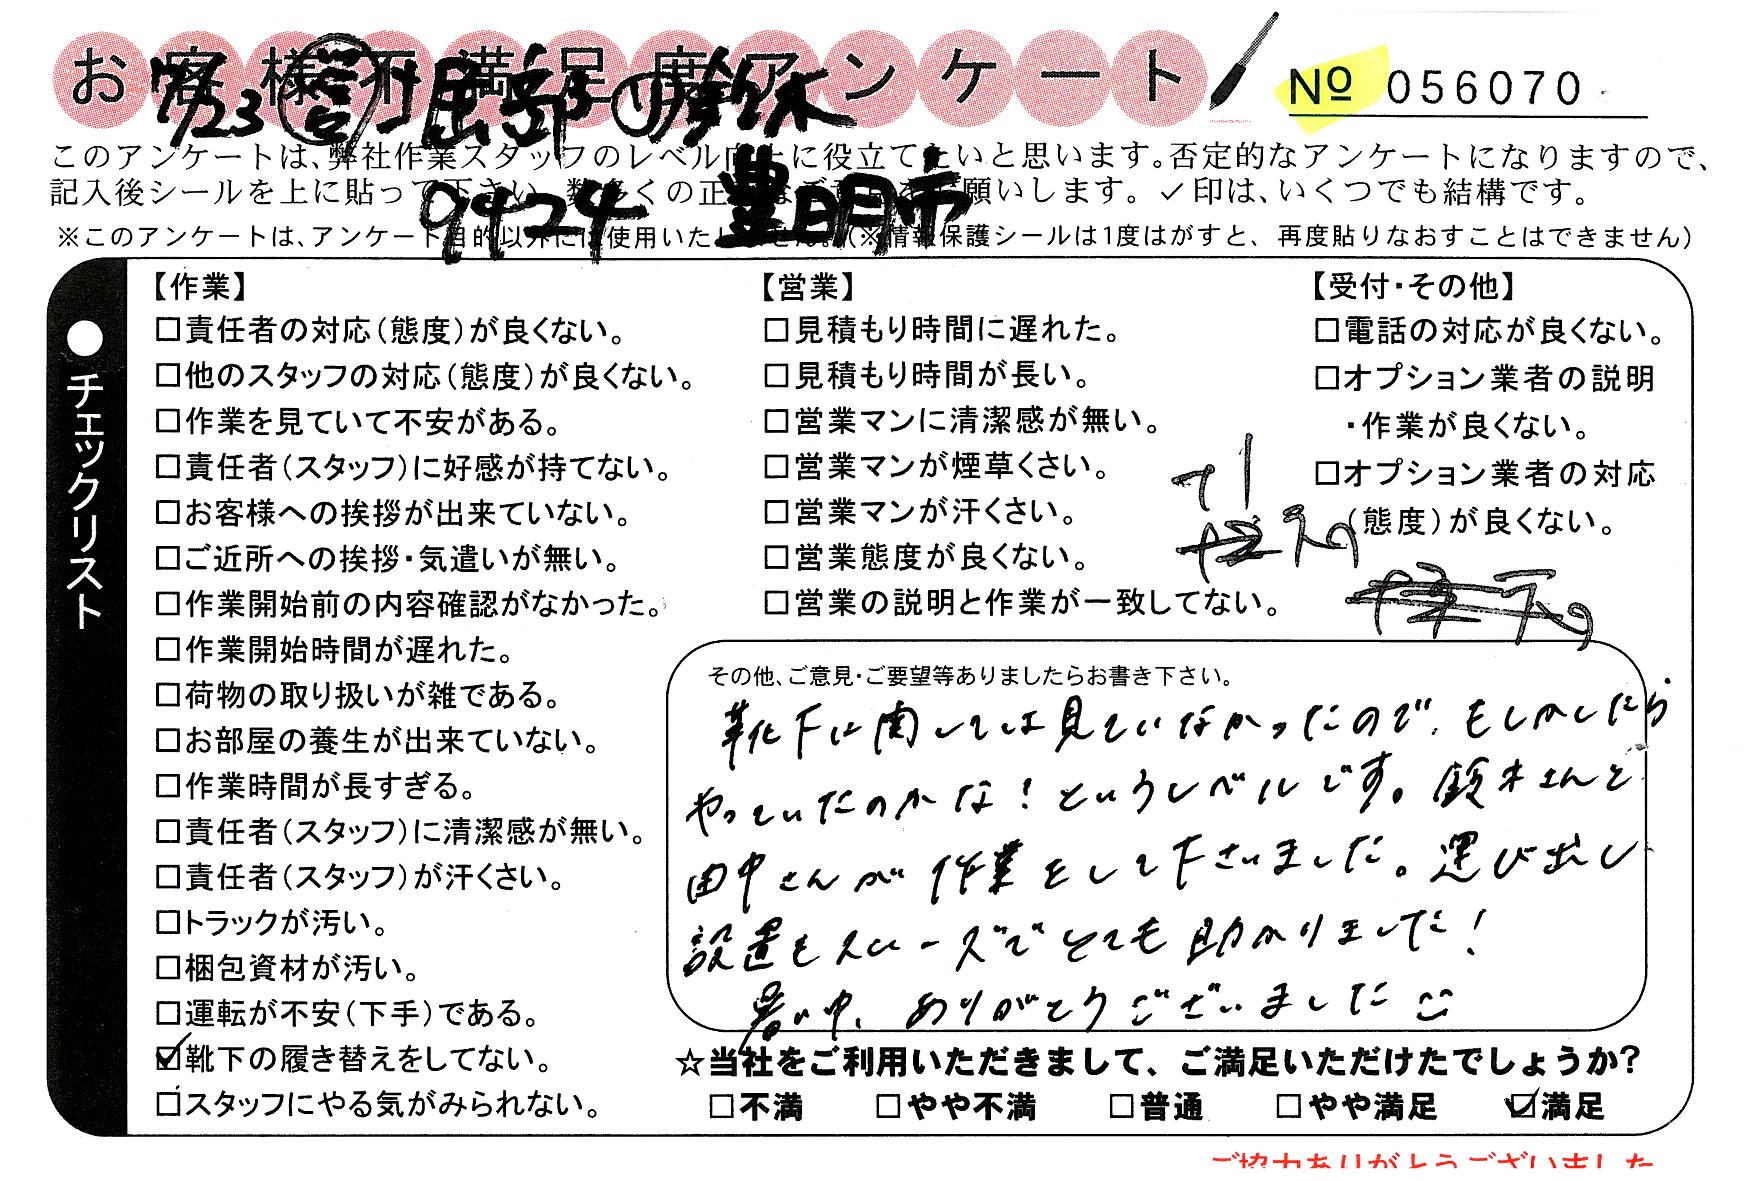 お客様不満足度アンケート
№ 056070
7/23
鈴木
9424 豊明市
このアンケートは、弊社作業スタッフのレベル向上に役立てたいと思います。否定的なアンケートになりますので、
記入後シールを上に貼って下さい。数多くの正直なご意見をお願いします。✓印は、いくつでも結構です。
※このアンケートは、アンケート目的以外には使用いたしません。(※情報保護シールは1度はがすと、再度貼りなおすことはできません)
●チェックリスト
【作業】
□責任者の対応(態度)が良くない。
□他のスタッフの対応(態度)が良くない。
□作業を見ていて不安がある。
□責任者(スタッフ)に好感が持てない。
□お客様への挨拶が出来ていない。
□ご近所への挨拶・気遣いが無い。
□作業開始前の内容確認がなかった。
□作業開始時間が遅れた。
□荷物の取り扱いが雑である。
□お部屋の養生が出来ていない。
□作業時間が長すぎる。
□責任者(スタッフ)に清潔感が無い。
□責任者(スタッフ)が汗くさい。
□トラックが汚い。
□梱包資材が汚い。
□運転が不安(下手)である。
☑靴下の履き替えをしてない。
□スタッフにやる気がみられない。
【営業】
□見積もり時間に遅れた。
□見積もり時間が長い。
□営業マンに清潔感が無い。
□営業マンが煙草くさい。
□営業マンが汗くさい。
□営業態度が良くない。
□営業の説明と作業が一致してない。
【受付・その他】
□電話の対応が良くない。
□オプション業者の説明
・作業が良くない。
□オプション業者の対応
(態度)が良くない。
その他、ご意見・ご要望等ありましたらお書き下さい。
靴下に関しては見ていなかったので、もしかしたら
やっていたのかな!というレベルです。鈴木さんと
田中さんが作業をして下さいました。運び出し
設置もスムーズでとても助かりました!
暑い中、ありがとうございました
☆当社をご利用いただきまして、ご満足いただけたでしょうか?
□不満 □やや不満 □普通 □やや満足 ☑満足
ご協力ありがとうございました